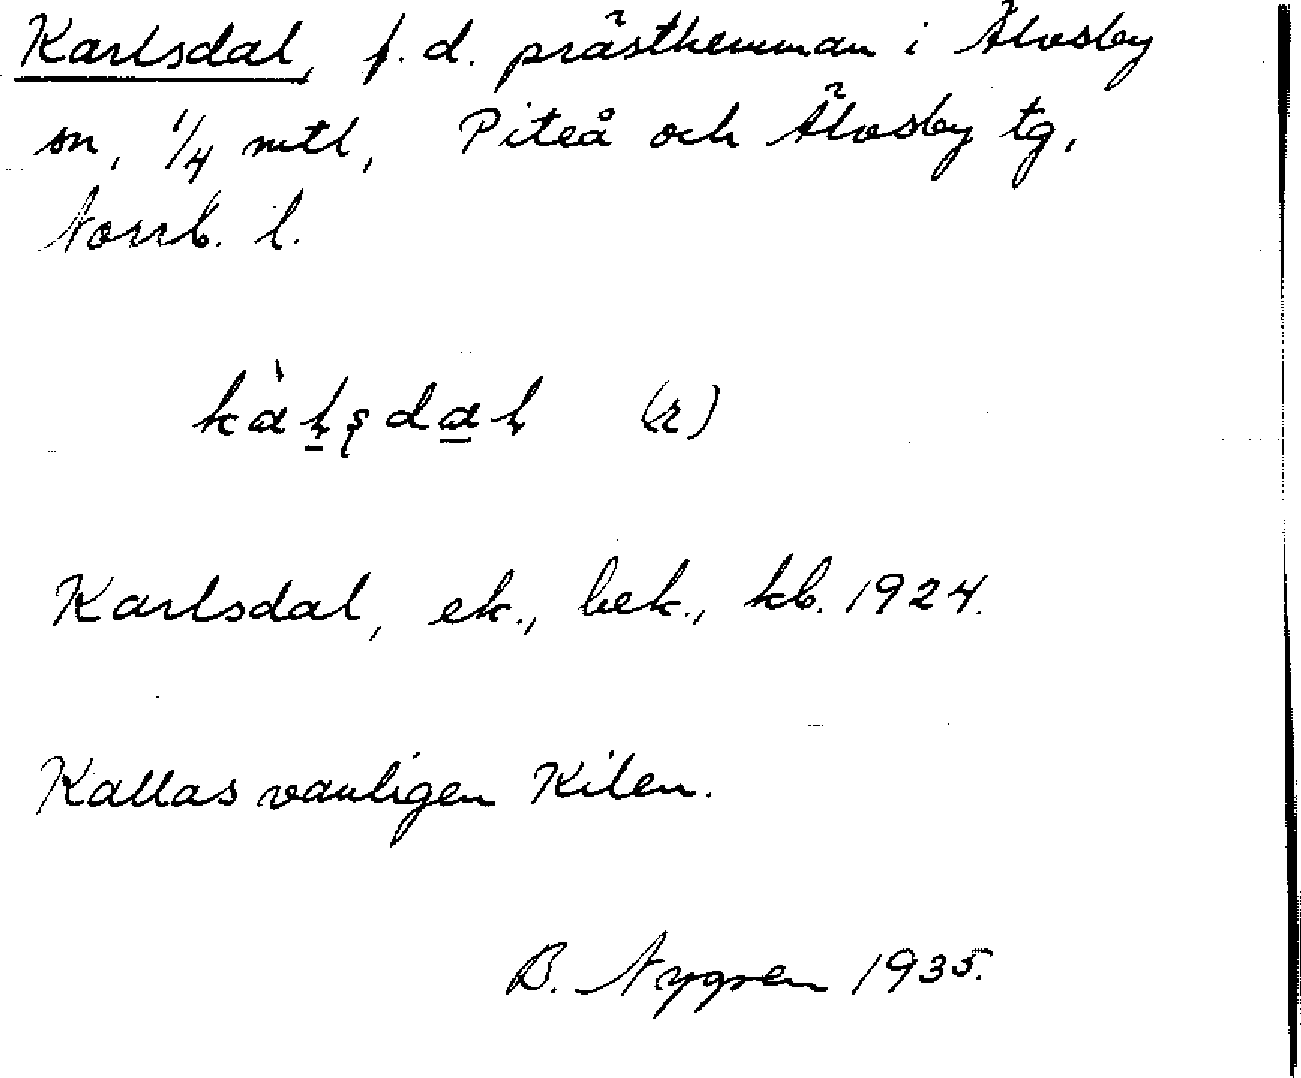 Karlsdal, f. d. prästhemman i Älvsby
sn, 1/4 mtl, Piteå och Älvsby tg,
Norrb. l.
kàḷṣdaḷ (r)
Karlsdal, ek., bek., kb. 1924.
Kallas vanligen Kilen.
B. Nygren 1935.